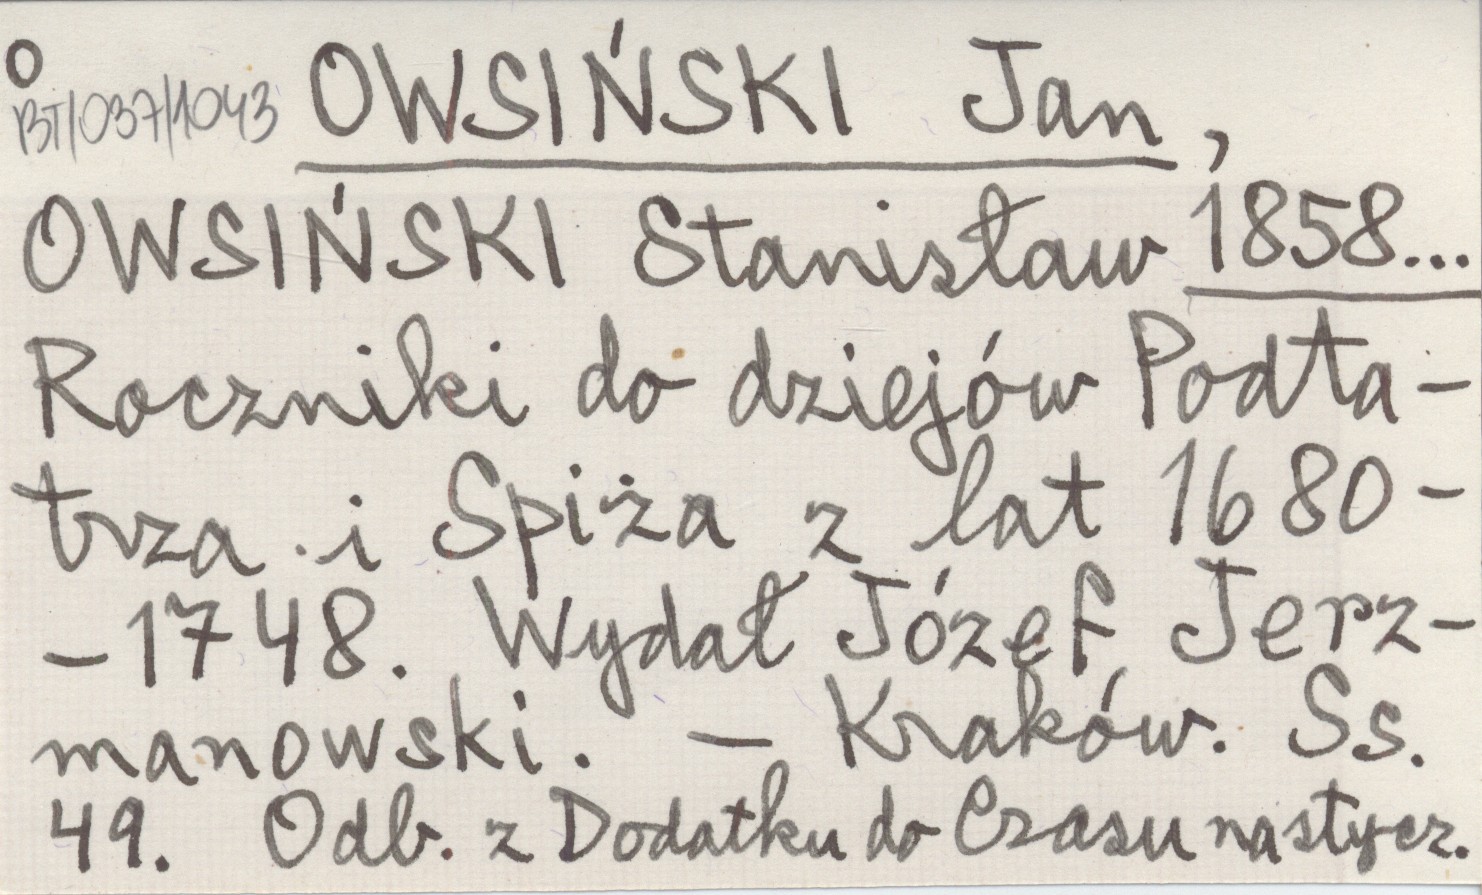 O
BT/037/1043 OWSIŃSKI Jan,
OWSIŃSKI Stanisław 1858...
Roczniki do dziejów Podta-
trza i Spiża z lat 1680-
-1748. Wydał Józef Jerz-
manowski. - Kraków. Ss.
49. Odb. z Dodatku do Czasu na stycz.